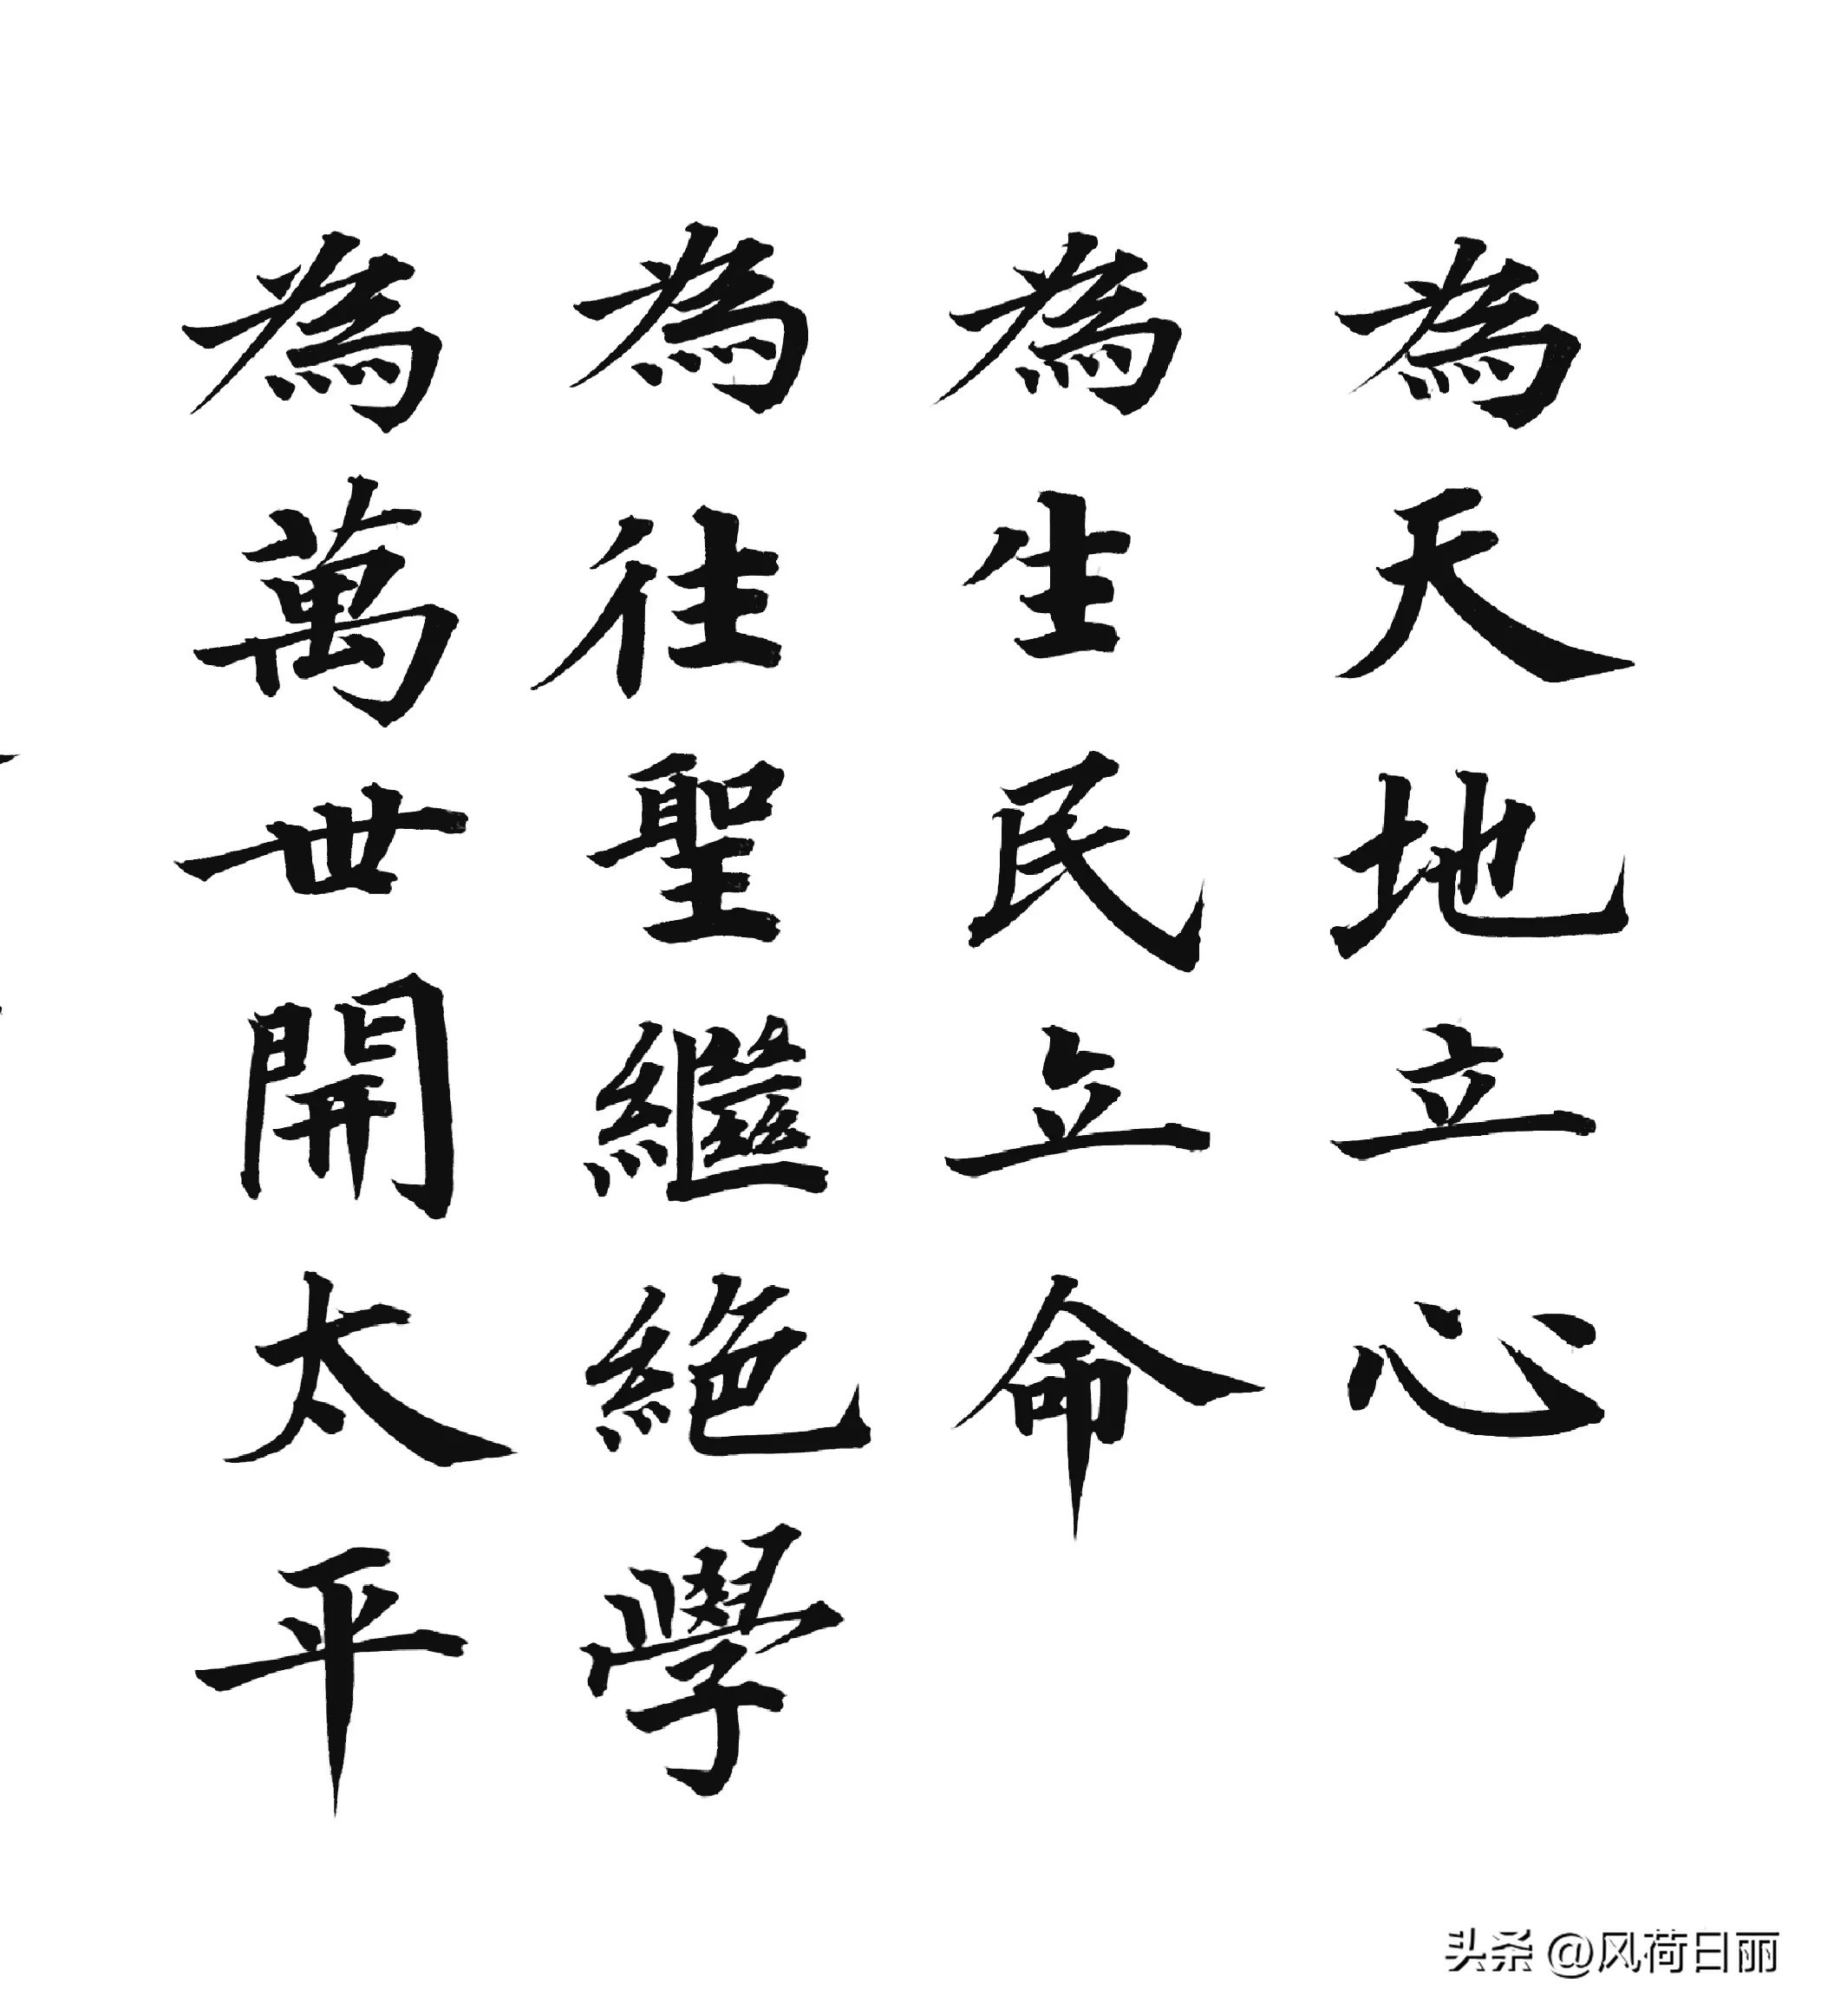 為天地立心
為生民立命
為往聖繼絕學
為萬世開太平
头条 @风荷日丽